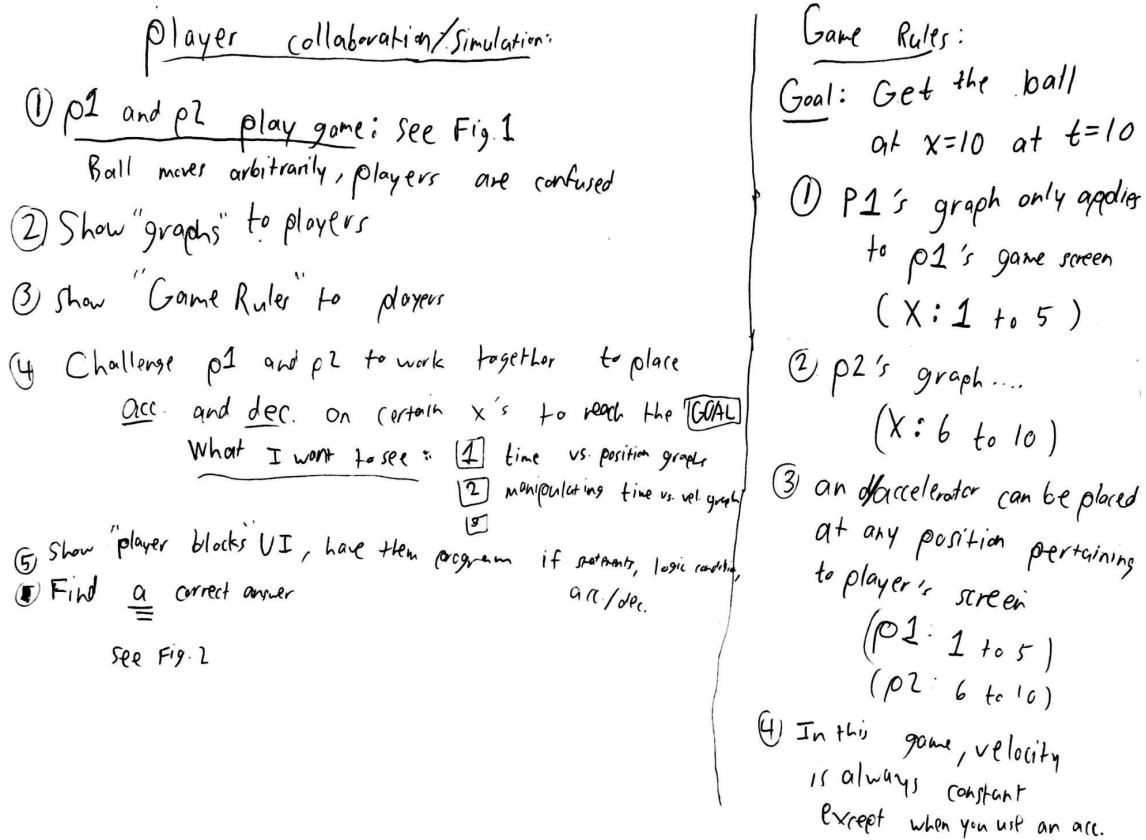 Player collaboration/Simulation:
① p1 and p2 play game: see Fig. 1
Ball moves arbitrarily, players are confused
② Show "graphs" to players
③ show "Game Rules" to players
④ Challenge p1 and p2 to work together to place
acc. and dec. on certain x's to reach the GOAL
What I want to see: 1 time vs. position graphs
2 manipulating time vs. vel. graph
⑤ Show "player blocks" UI, have them program if statements, logic condition,
acc./dec.
Find a correct answer
see Fig. 2
Game Rules:
Goal: Get the ball
at x=10 at t=10
① P1's graph only applies
to p1's game screen
(X: 1 to 5)
② p2's graph....
(X: 6 to 10)
③ an accelerator can be placed
at any position pertaining
to player's screen
(p1: 1 to 5)
(p2: 6 to 10)
④ In this game, velocity
is always constant
except when you use an acc.